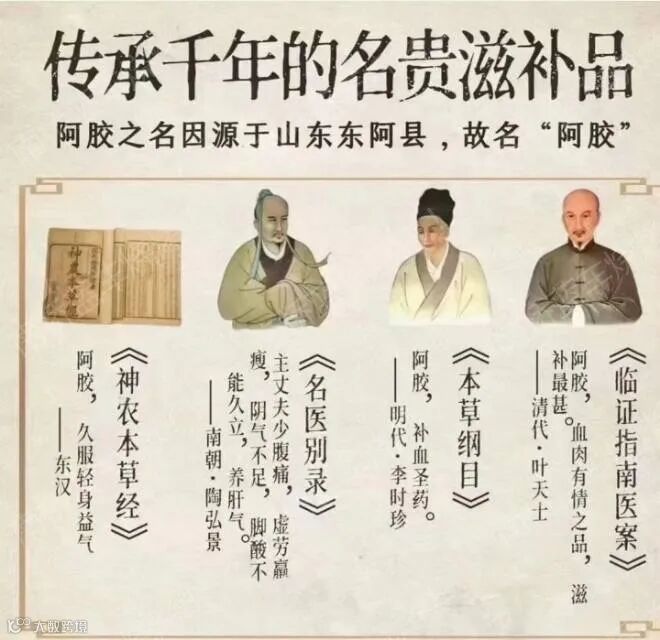 传承千年的名贵滋补品
阿胶之名因源于山东东阿县，故名“阿胶”
神农本草经
《神农本草经》
阿胶，久服轻身益气
——东汉
《名医别录》
主丈夫少腹痛，虚劳羸
瘦，阴气不足，脚酸不
能久立，养肝气。
——南朝·陶弘景
《本草纲目》
阿胶，补血圣药。
——明代·李时珍
《临证指南医案》
阿胶，血肉有情之品，滋
补最甚。
——清代·叶天士
大数跨境